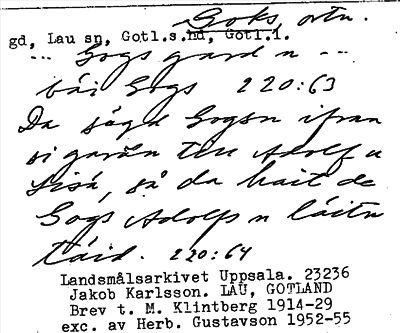 Goks, ortn.
gd, Lau sn, Gotl.s.hd, Gotl.l.
... Gogs gard n ...
bäi Gogs 220:63
Da sögd Gogsn ifran
si garån ten Adolf u
Lisá, så da hait de
Gogs Adolfs n läitn
täid. 220:64
Landsmålsarkivet Uppsala. 23236
Jakob Karlsson. LAU, GOTLAND
Brev t. M. Klintberg 1914-29
exc. av Herb. Gustavson 1952-55